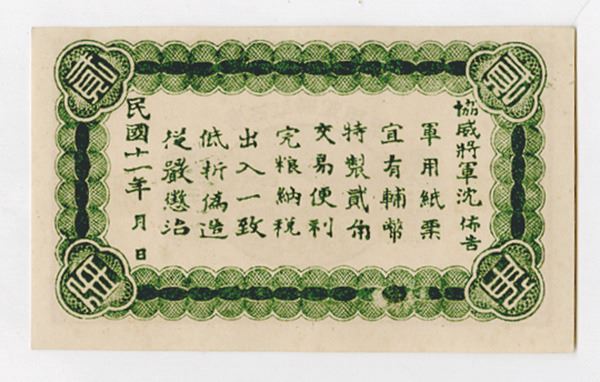 協威將軍沈 佈告
軍用紙票
宜有輔幣
特製貳角
交易便利
完粮納稅
出入一致
低折偽造
從嚴懲治
民國十一年 月 日